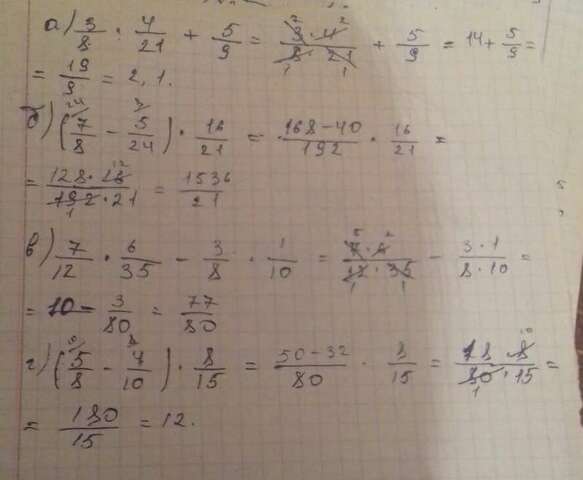 а) 3/8 · 4/21 + 5/9 = 3·4/8·21 + 5/9 = 14 + 5/9 =
= 19/9 = 2,1.
б) (7/8 - 5/24) · 16/21 = 168-40/192 · 16/21 =
= 128·16/192·21 = 1536/21
в) 7/12 · 6/35 - 3/8 · 1/10 = 7·6/12·35 - 3·1/8·10 =
= 10 - 3/80 = 77/80
г) (5/8 - 4/10) · 8/15 = 50-32/80 · 8/15 = 18·8/80·15 =
= 180/15 = 12.